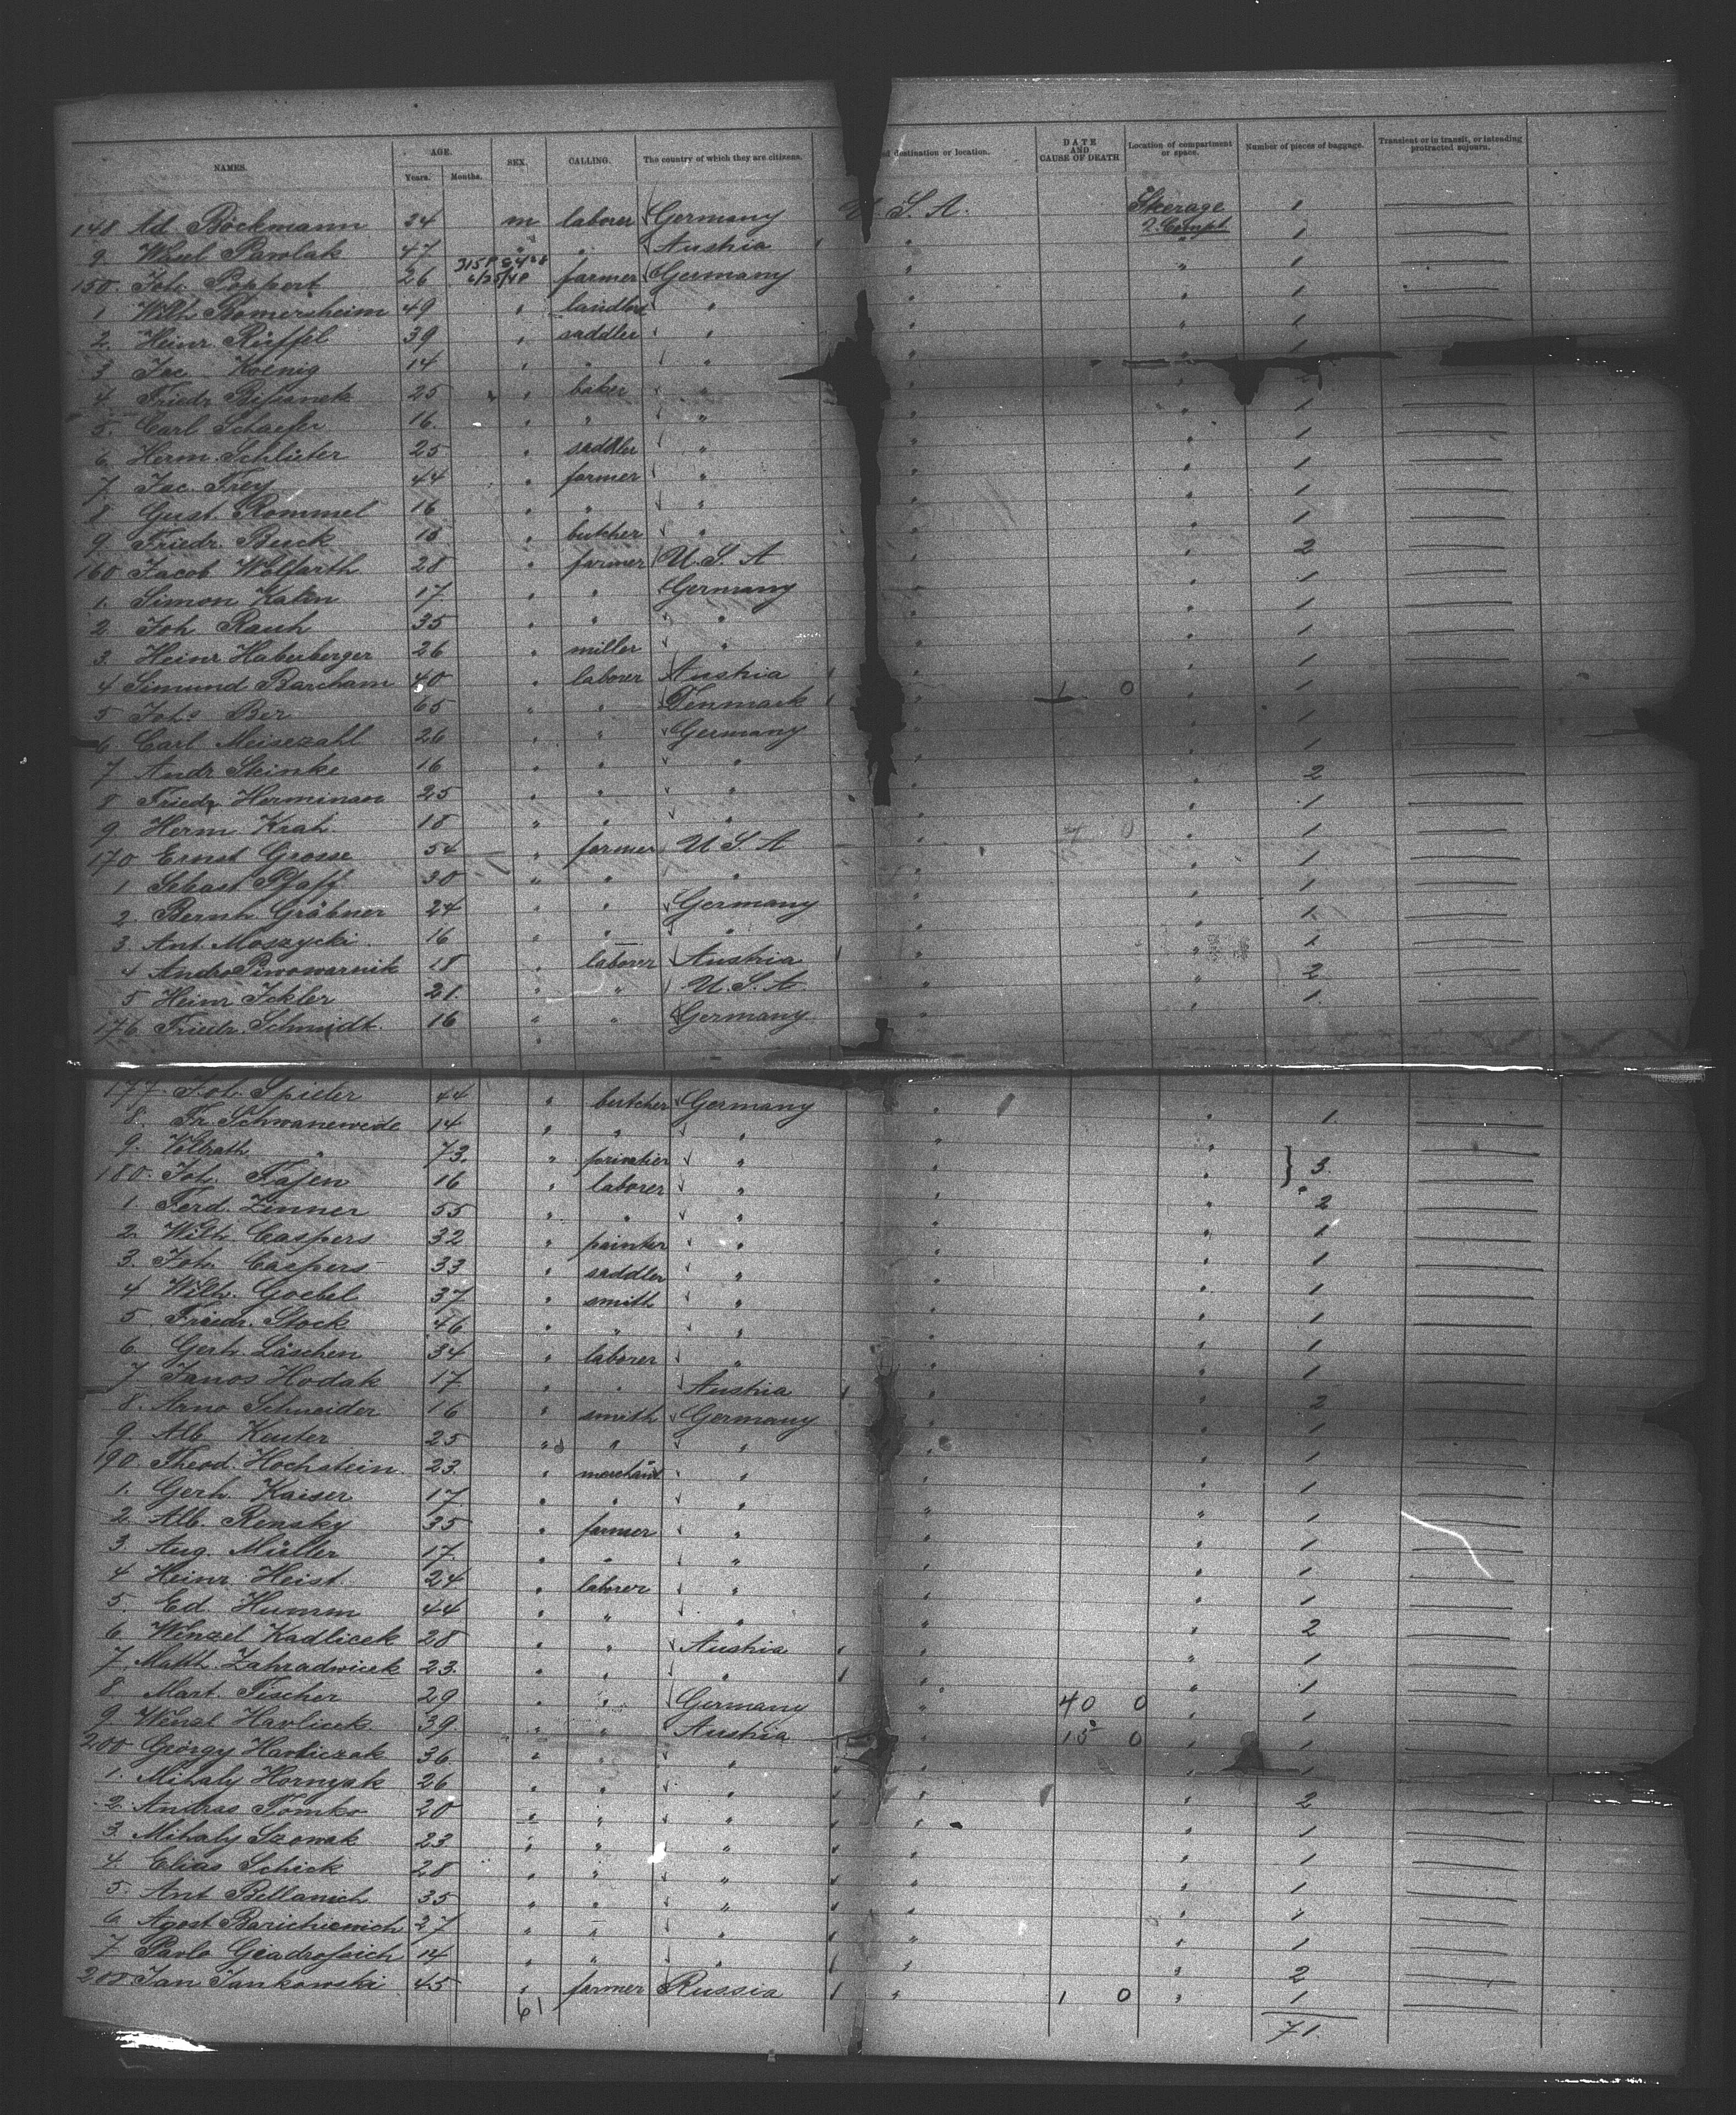 NAMES. AGE. Years. Months. SEX. CALLING. The country of which they are citizens. destination or location. DATE AND CAUSE OF DEATH Location of compartment or space. Number of pieces of baggage. Transient or in transit, or intending protracted sojourn.
148 Ad. Böckmann 24 m laborer Germany U. S. A. Steerage 1
2. Compt.
9. Wasel Pawlak 47 " " Austria " " 1
150. Joh. Poppert 26 farmer Germany " " 1
1 Wilh. Romersheim 49 " landlord " " " 1
2. Heinr. Rüffel 39 " saddler " " " 1
3 Jac. Koenig 14 " " " " 1
4. Friedr. 25 " baker " "
5. Carl Schaefer 16. " " " " " 1
6. Herm. Schlüter 25 " saddler " " " 1
7. Jac. Frey 44 " farmer " " " 1
8 Gust. Rommel 16 " " " " " 1
9 Friedr. Buck 18 " butcher " " " 1
160. Jacob Wolfarth 28 " farmer U. S. A " 2
1. Simon Kahn 17 " " Germany " " 1
2. Joh. Rauh 35 " " " " " 1
3. Heinr. Haberberger 26 " miller " " " 1
4 Simund Barcham 40 " laborer Austria " " 1
5 Johs Ber 65 " " Denmark " 1 0 " 1
6. Carl Meisezahl 26 " " Germany " " 1
7 Andr. Steinke 16 " " " " " 1
8 Friedr. Herminau 25 " " " " " 2
9. Herm. Krah. 18 " " " " " 1
170 Ernst Grosse 54 " farmer U S A " " 1
1 Sebast. Pfaff 30 " " " " " 1
2. Bernh. Gräbner 24 " " Germany " " 1
3. Ant. Moszycki 16 " " " " 1
4 Andro Piwowarnik 18 " laborer Austria " 1
5 Heinr. Ickler 21. " " U. S. A. " " 2
176. Friedr. Schmidt. 16 " " Germany 1.
177. Joh. Spieler 44 " butcher Germany " " 1.
8. Fr. Schwanewede 14 " " " " "
9. Vollrath " 73. " " " " } 3
180. Joh. Fajen 16 " laborer " " "
1. Ferd. Zinner 55 " " " " " 2
2. Wilh. Caspers 32 " painter " " " 1
3. Joh. Caspers 33 " saddler " " " 1
4 Wilh. Goebel 37 " smith " " " 1
5. Friedr. Stock 46 " " " " " 1
6. Gerh. Läschen 34 " laborer " " " 1
7 Janos Hodak 17 " " Austria " " 1
8. Arno Schneider 16 " smith Germany " " 2
9 Alb. Keuter 25 " " " " " 1
190. Theod. Hochstein. 23. " merchant " " " 1
1. Gerh. Kaiser 17 " " " " " 1
2. Alb. Rensky 35 " farmer " " " 1
3. Aug. Müller 17. " " " " " 1
4 Heinr. Heist. 24 " laborer " " " 1
5. Ed. Humm 44 " " " " " 1
6 Wenzel Kadlicek 28 " " Austria " " 2
7. Matth. Zahradnicek 23. " " " " " 1
8 Mart. Fischer 29 " " Germany " 40 0 " 1
9 Wenzl Havlicek 39 " " Austria 15 0 " 1
200 György Havliczak 36 " " " " " 1
1. Mihaly Hornyak 26 " " " " " 1
2. Andras Tomko 20 " " " " " 2
3. Mihaly Szowak 23 " " " " " 1
4. Elias Schick 28 " " " " " 1
5. Ant. Bellanich 35 " " " " " 1
6 Agost Barichiewich 27 " " " " " 1
7 Pavlo 14 " " " " " 1
208. Jan Jankowski 45 " farmer Russia " 1 0 " 2
61 1
71.